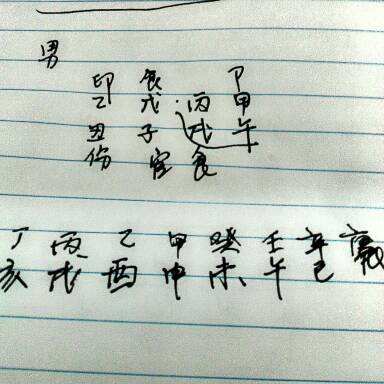 男
印 食 丁
乙 戊 丙 甲
丑 子 戌 午
伤 官 食
丁 丙 乙 甲 癸 壬 辛 庚
亥 戌 酉 申 未 午 巳 辰